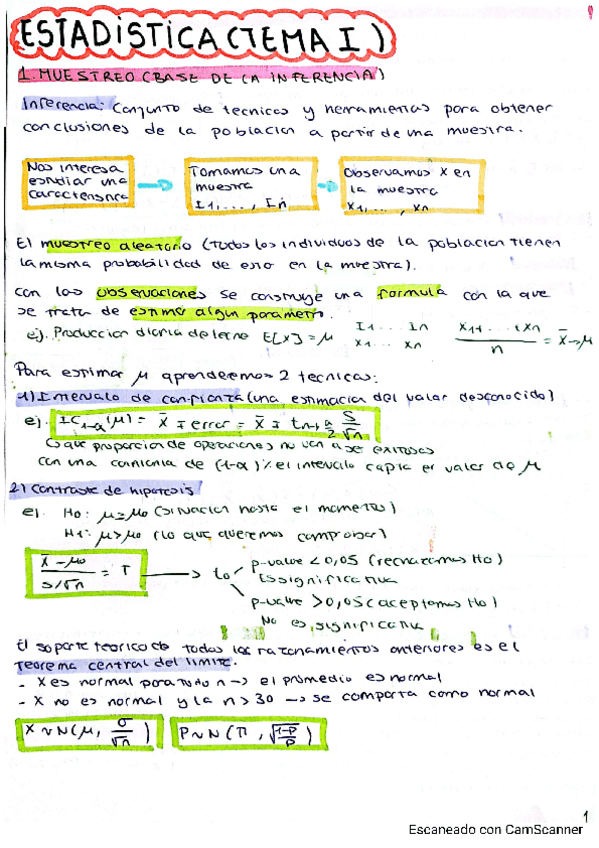 ESTADÍSTICA (TEMA I)
1. MUESTREO (BASE DE LA INFERENCIA)
Inferencia: Conjunto de tecnicas y herramientas para obtener
conclusiones de la poblacion a partir de una muestra.
Nos interesa estudiar una caracteristica
Tomamos una muestra I1, ..., In
Observamos X en la muestra x1, ..., xn
El muestreo aleatorio (todos los individuos de la poblacion tienen
la misma probabilidad de estar en la muestra).
Con las observaciones se construye una formula con la que
se trata de estimar algún parametro.
ej. Produccion diaria de leche E[X] = μ I1 ... In x1 ... xn (x1+ ... +xn)/n = x̄ → μ
Para estimar μ aprenderemos 2 tecnicas:
1) Intervalo de confianza (una estimacion del valor desconocido)
ej. IC1-α(μ) = x̄ ∓ error = x̄ ∓ tn-1, α/2 S/√n
que proporcion de operaciones no van a ser exitosas
con una confianza de (1-α)% el intervalo capta el valor de μ
2) Contraste de hipotesis
ej. H0: μ=μ0 (situacion hasta el momento)
H1: μ>μ0 (lo que queremos comprobar)
(x̄-μ0)/(s/√n) = T → to
p-value <0,05 (rechazamos H0)
Es significativa
p-value >0,05 (aceptamos H0)
No es significativa
El soporte teorico de todos los razonamientos anteriores es el
Teorema central del limite.
- X es normal para todo n → el promedio es normal
- X no es normal y la n>30 → se comporta como normal
X~N(μ, σ/√n) P~N(π, √(1-P)/P)
1
Escaneado con CamScanner